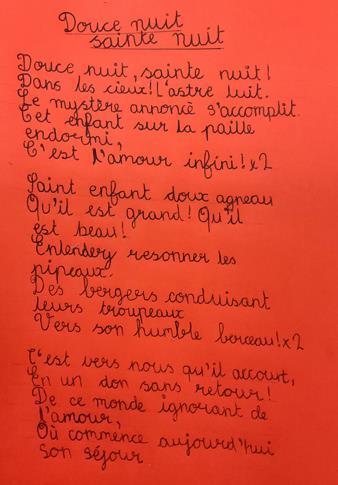 Douce nuit
sainte nuit
Douce nuit, sainte nuit!
Dans les cieux! L'astre luit.
Le mystère annoncé s'accomplit.
Cet enfant sur la paille
endormi,
C'est l'amour infini! x2
Saint enfant doux agneau
Qu'il est grand! Qu'il
est beau!
Entendez resonner les
pipeaux.
Des bergers conduisant
leurs troupeaux
Vers son humble berceau! x2
C'est vers nous qu'il accourt,
En un don sans retour!
De ce monde ignorant de
l'amour,
Où commence aujourd'hui
Son séjour